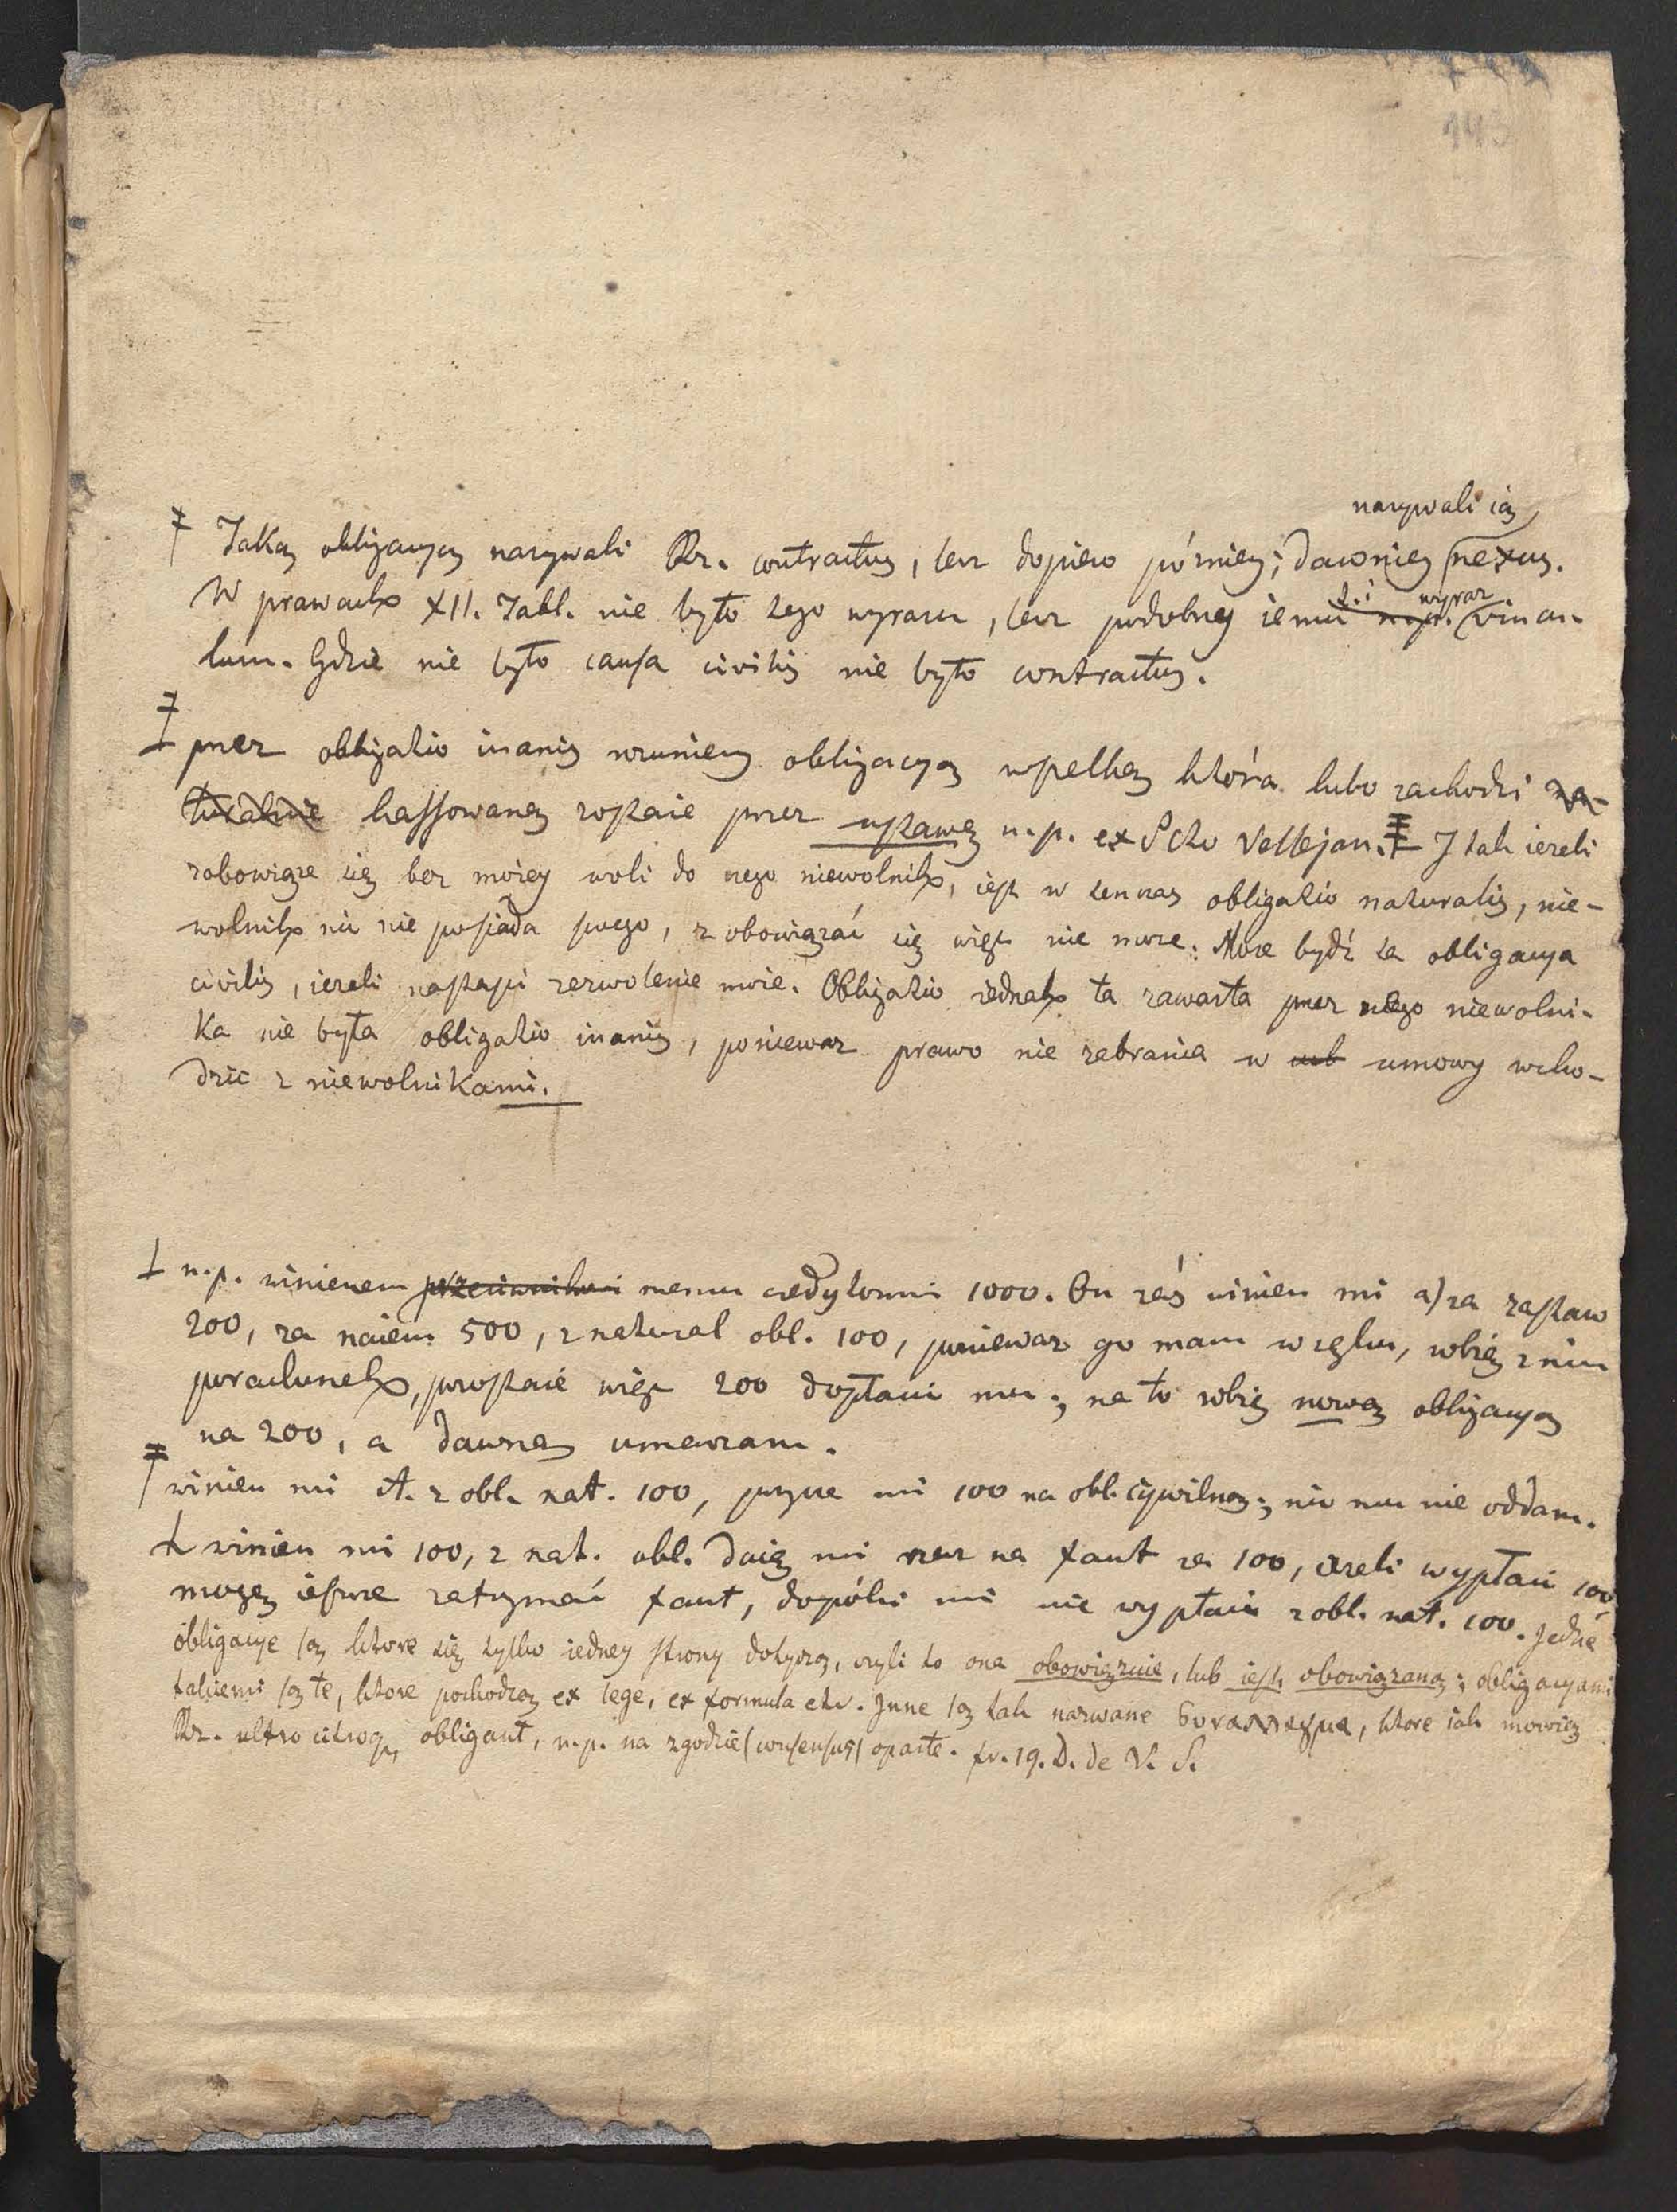 143
nazywali ią
Taką obligacyą nazywali Rz. contractus, lecz dopiero pózniey; dawniey nexus.
t. i. wyraz
W prawach XII. Tabl. nie było tego wyrazu, lecz podobny iemu n.p. vincu-
lum. Gdzie nie było causa civilis nie było contractus.
przez obligatio inanis rozumiemy obligacyą wszelką która lubo zachodzi na-
turalnie kassowaną zostaie przez ustawę n.p. ex SCto Vellejan. I tak iezeli
zobowiąze się bez moiey woli do czego niewolnik, iest w tenczas obligatio naturalis, nie-
wolnik nic nie posiada swego, zobowiązać się więc nie moze. Moze bydź ta obligacya
civilis, iezeli nastąpi zezwolenie moie. Obligatio iednak ta zawarta przez niego niewolni-
ka nie była obligatio inanis, poniewaz prawo nie zabrania w umowy wcho-
dzic z niewolnikami.
n.p. winienem przeciwnikowi memu credytorowi 1000. On zaś winien mi a) za zastaw
200, za naiem 500, z natural obl. 100, poniewaz go mam w ręku, robię z nim
porachunek, pozostaie więc 200 dopłacić mu; na to robię nową obligacyą
na 200, a dawną umarzam.
winien mi A. z obl. nat. 100, pozycze mi 100 na obl. cywilną; nic mu nie oddam.
winien mi 100, z nat. obl. daię mi rzecz na fant za 100, iezeli wypłaci 100,
mogę ieszcze zatrzymać fant, dopóki mi nie wypłaci z obl. nat. 100. Jedne
obligacye są ktore się tylko iedney strony dotyczą, czyli to ona obowiązuie, lub iest obowiązaną; obligacyami
takiemi są te, ktore pochodzą ex lege, ex formula etc. Inne są tak nazwane συναλλαγμα, ktore iak mowią
Rz. ultro citroq. obligant, n.p. na zgodzie (consensus) oparte. fr. 19. D. de V. S.